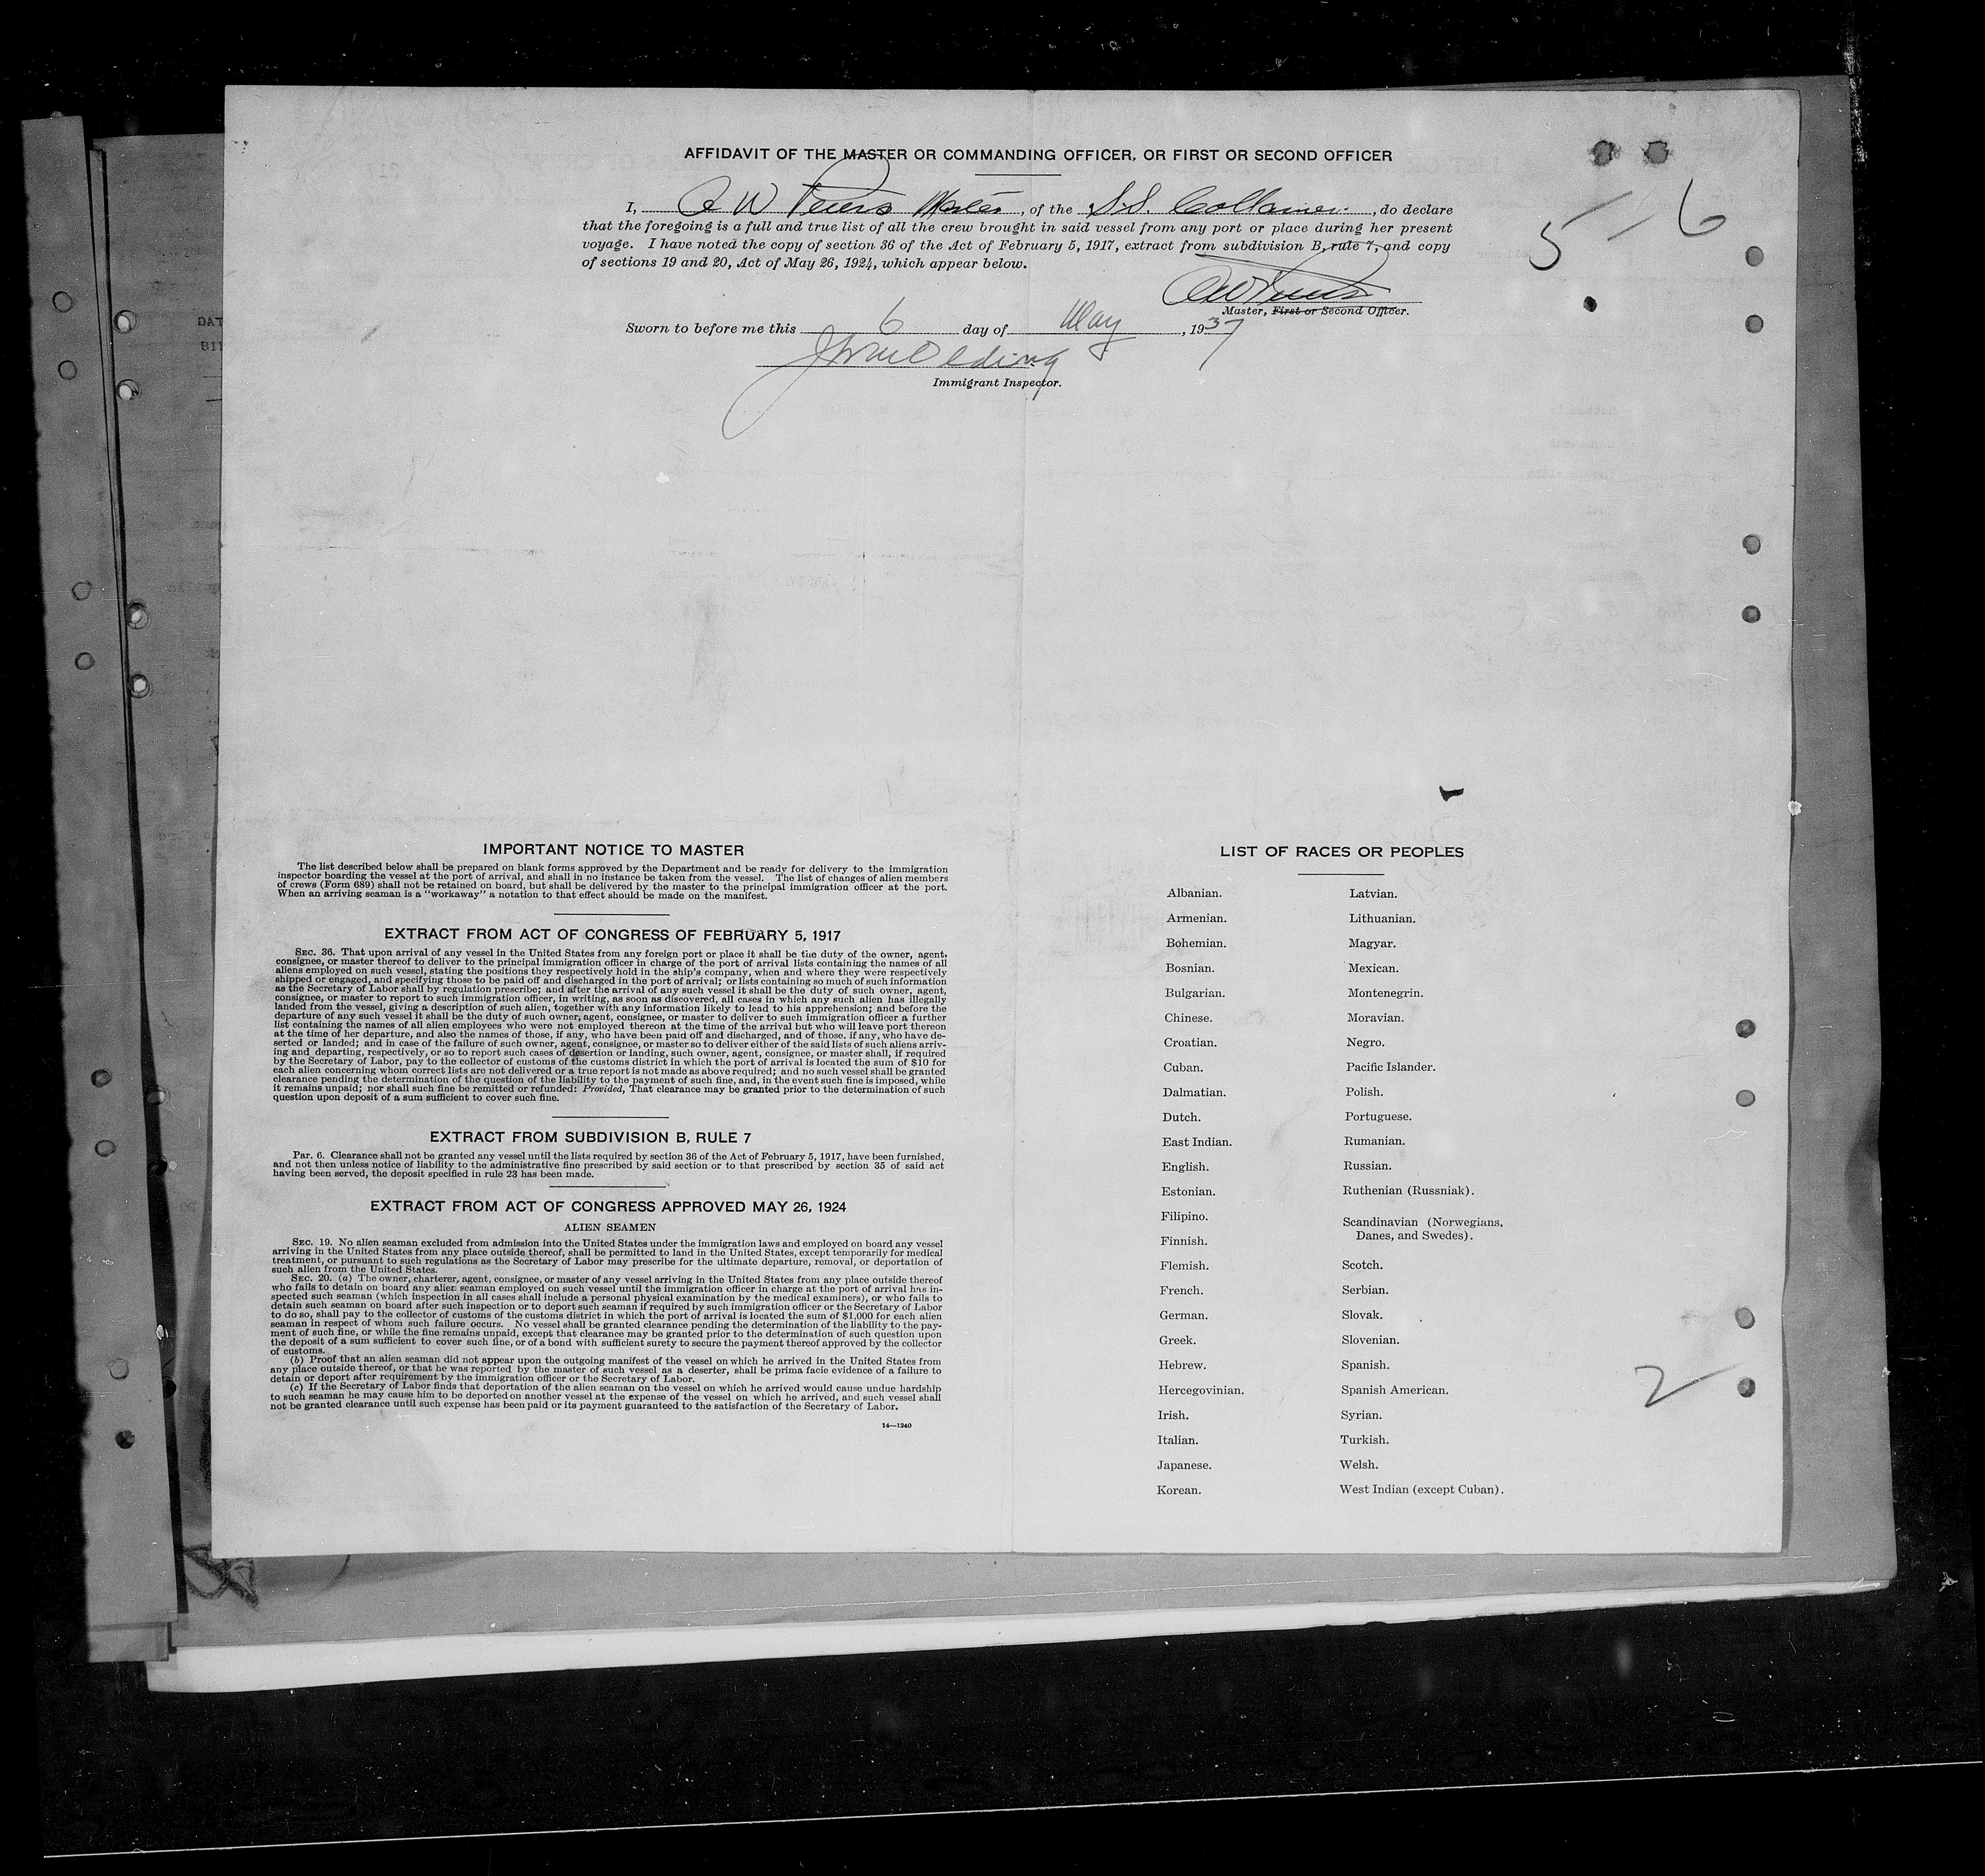 AFFIDAVIT OF THE MASTER OR COMMANDING OFFICER, OR FIRST OR SECOND OFFICER
I, A W Peters Master, of the S.S. Collamer, do declare
that the foregoing is a full and true list of all the crew brought in said vessel from any port or place during her present
voyage. I have noted the copy of section 36 of the Act of February 5, 1917, extract from subdivision B, rule 7, and copy
of sections 19 and 20, Act of May 26, 1924, which appear below.
5-6
Master, First or Second Officer.
Sworn to before me this 6 day of May, 1937
Immigrant Inspector.
IMPORTANT NOTICE TO MASTER
The list described below shall be prepared on blank forms approved by the Department and be ready for delivery to the immigration
inspector boarding the vessel at the port of arrival, and shall in no instance be taken from the vessel. The list of changes of alien members
of crews (Form 689) shall not be retained on board, but shall be delivered by the master to the principal immigration officer at the port.
When an arriving seaman is a "workaway" a notation to that effect should be made on the manifest.
EXTRACT FROM ACT OF CONGRESS OF FEBRUARY 5, 1917
SEC. 36. That upon arrival of any vessel in the United States from any foreign port or place it shall be the duty of the owner, agent,
consignee, or master thereof to deliver to the principal immigration officer in charge of the port of arrival lists containing the names of all
aliens employed on such vessel, stating the positions they respectively hold in the ship's company, when and where they were respectively
shipped or engaged, and specifying those to be paid off and discharged in the port of arrival; or lists containing so much of such information
as the Secretary of Labor shall by regulation prescribe; and after the arrival of any such vessel it shall be the duty of such owner, agent,
consignee, or master to report to such immigration officer, in writing, as soon as discovered, all cases in which any such alien has illegally
landed from the vessel, giving a description of such alien, together with any information likely to lead to his apprehension; and before the
departure of any such vessel it shall be the duty of such owner, agent, consignee, or master to deliver to such immigration officer a further
list containing the names of all alien employees who were not employed thereon at the time of the arrival but who will leave port thereon
at the time of her departure, and also the names of those, if any, who have been paid off and discharged, and of those, if any, who have de-
serted or landed; and in case of the failure of such owner, agent, consignee, or master so to deliver either of the said lists of such aliens arriv-
ing and departing, respectively, or so to report such cases of desertion or landing, such owner, agent, consignee, or master shall, if required
by the Secretary of Labor, pay to the collector of customs of the customs district in which the port of arrival is located the sum of $10 for
each alien concerning whom correct lists are not delivered or a true report is not made as above required; and no such vessel shall be granted
clearance pending the determination of the question of the liability to the payment of such fine, and, in the event such fine is imposed, while
it remains unpaid; nor shall such fine be remitted or refunded: Provided, That clearance may be granted prior to the determination of such
question upon deposit of a sum sufficient to cover such fine.
EXTRACT FROM SUBDIVISION B, RULE 7
PAR. 6. Clearance shall not be granted any vessel until the lists required by section 36 of the Act of February 5, 1917, have been furnished,
and not then unless notice of liability to the administrative fine prescribed by said section or to that prescribed by section 35 of said act
having been served, the deposit specified in rule 23 has been made.
EXTRACT FROM ACT OF CONGRESS APPROVED MAY 26, 1924
ALIEN SEAMEN
SEC. 19. No alien seaman excluded from admission into the United States under the immigration laws and employed on board any vessel
arriving in the United States from any place outside thereof, shall be permitted to land in the United States, except temporarily for medical
treatment, or pursuant to such regulations as the Secretary of Labor may prescribe for the ultimate departure, removal, or deportation of
such alien from the United States.
SEC. 20. (a) The owner, charterer, agent, consignee, or master of any vessel arriving in the United States from any place outside thereof
who fails to detain on board any alien seaman employed on such vessel until the immigration officer in charge at the port of arrival has in-
spected such seaman (which inspection in all cases shall include a personal physical examination by the medical examiners), or who fails to
detain such seaman on board after such inspection or to deport such seaman if required by such immigration officer or the Secretary of Labor
to do so, shall pay to the collector of customs of the customs district in which the port of arrival is located the sum of $1,000 for each alien
seaman in respect of whom such failure occurs. No vessel shall be granted clearance pending the determination of the liability to the pay-
ment of such fine, or while the fine remains unpaid, except that clearance may be granted prior to the determination of such question upon
the deposit of a sum sufficient to cover such fine, or of a bond with sufficient surety to secure the payment thereof approved by the collector
of customs.
(b) Proof that an alien seaman did not appear upon the outgoing manifest of the vessel on which he arrived in the United States from
any place outside thereof, or that he was reported by the master of such vessel as a deserter, shall be prima facie evidence of a failure to
detain or deport after requirement by the immigration officer or the Secretary of Labor.
(c) If the Secretary of Labor finds that deportation of the alien seaman on the vessel on which he arrived would cause undue hardship
to such seaman he may cause him to be deported on another vessel at the expense of the vessel on which he arrived, and such vessel shall
not be granted clearance until such expense has been paid or its payment guaranteed to the satisfaction of the Secretary of Labor.
14—1240
LIST OF RACES OR PEOPLES
Albanian.
Armenian.
Bohemian.
Bosnian.
Bulgarian.
Chinese.
Croatian.
Cuban.
Dalmatian.
Dutch.
East Indian.
English.
Estonian.
Filipino.
Finnish.
Flemish.
French.
German.
Greek.
Hebrew.
Hercegovinian.
Irish.
Italian.
Japanese.
Korean.
Latvian.
Lithuanian.
Magyar.
Mexican.
Montenegrin.
Moravian.
Negro.
Pacific Islander.
Polish.
Portuguese.
Rumanian.
Russian.
Ruthenian (Russniak).
Scandinavian (Norwegians,
Danes, and Swedes).
Scotch.
Serbian.
Slovak.
Slovenian.
Spanish.
Spanish American.
Syrian.
Turkish.
Welsh.
West Indian (except Cuban).
2